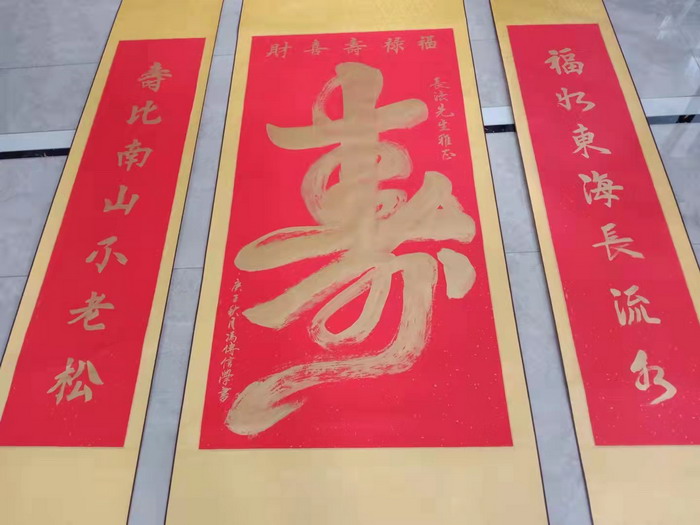 福如東海長流水
福禄壽喜財
長法先生雅正
壽
庚子秋月馮博信學書
壽比南山不老松